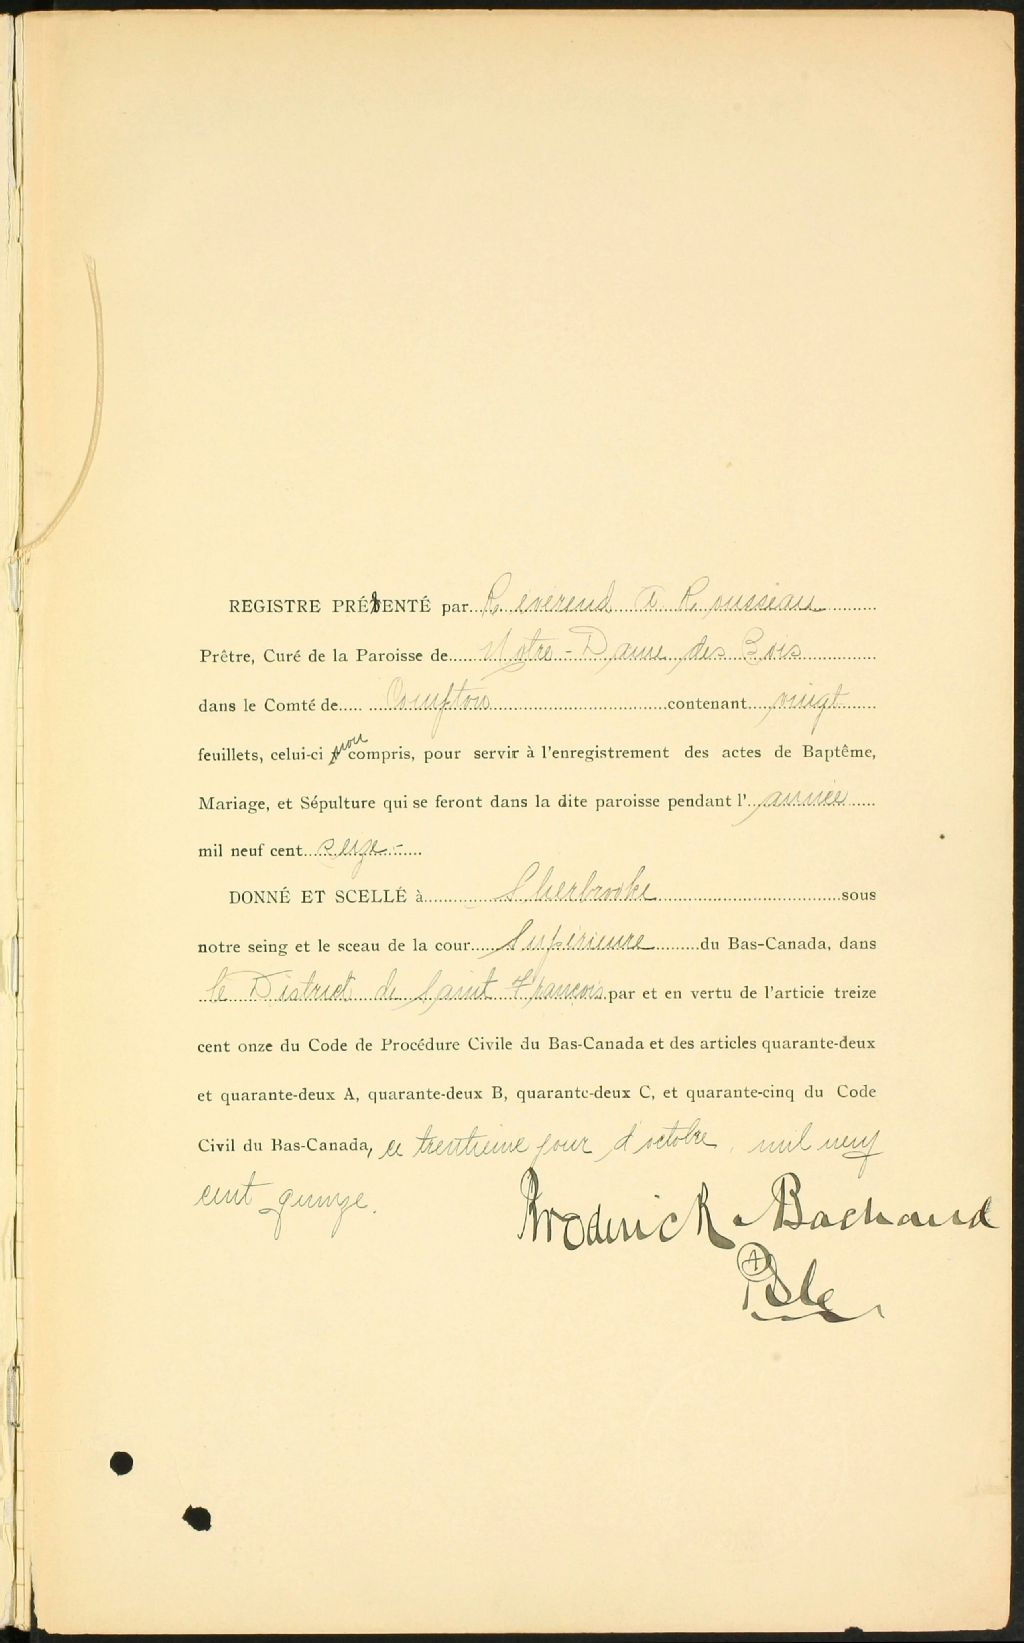 REGISTRE PRÉSENTÉ par Reverend A Rousseau
Prêtre, Curé de la Paroisse de Notre-Dame des Bois
dans le Comté de Compton contenant vingt
feuillets, celui-ci non compris, pour servir à l'enregistrement des actes de Baptême,
Mariage, et Sépulture qui se feront dans la dite paroisse pendant l' année
mil neuf cent seize.-
DONNÉ ET SCELLÉ à Sherbrooke sous
notre seing et le sceau de la cour Supérieure du Bas-Canada, dans
le District de Saint François par et en vertu de l'articie treize
cent onze du Code de Procédure Civile du Bas-Canada et des articles quarante-deux
et quarante-deux A, quarante-deux B, quarante-deux C, et quarante-cinq du Code
Civil du Bas-Canada, ce trentieme jour d'octobre, mil neuf
cent quinze.
Broderick Bachand